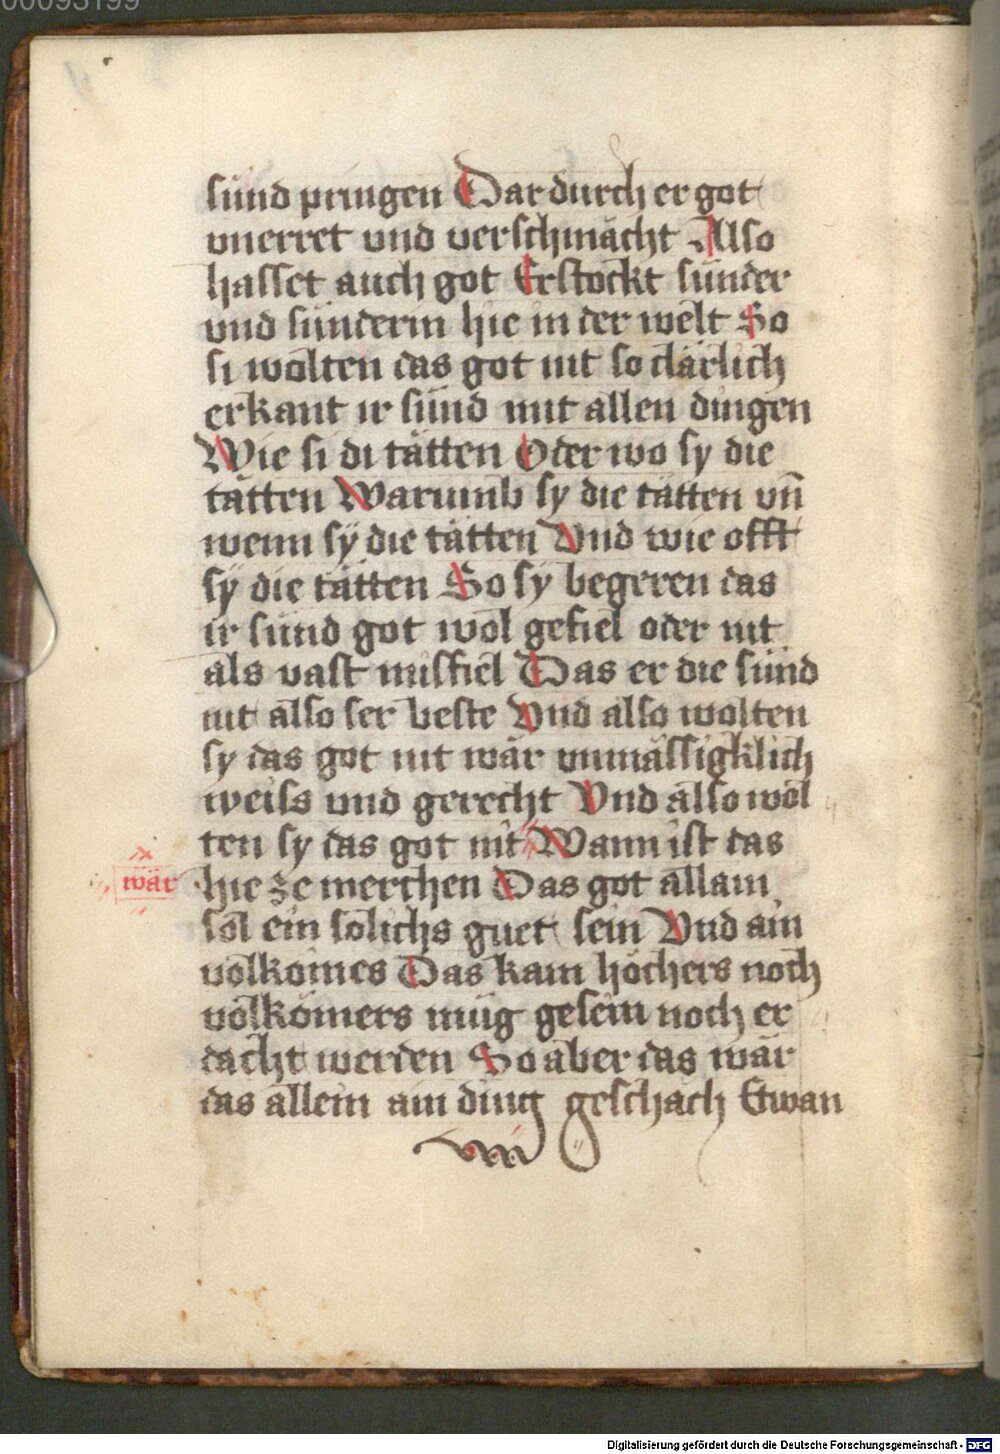 00093199
sünd pringen Dar durch er got
vnerret vnd verschmächt Also
hasset auch got Erstockt sünder
vnd sünderin hie in der welt So
si wolten das got nit so clärlich
erkant ir sünd mit allen dingen
Wie si di tätten Oder wo sy die
tätten Warumb sy die tätten vn̄
wenn sÿ die tätten Vnd wie offt
sÿ die tätten So sÿ begeren das
ir sünd got wol gefiel oder nit
als vast misfiel Das er die sünd
nit also ser veste Vnd also wolten
sy das got nit wär vnmässigklich
weiss vnd gerecht Vnd also wol
ten sy das got nit Wann ist das
wär
hie ze merchen Das got allain
sol ein solichs guet sein Vnd ain
volkomes Das kain höchers noch
volkomers müg gesein noch er
dacht werden So aber das wär
das allein ain ding geschäch Etwan
Digitalisierung gefördert durch die Deutsche Forschungsgemeinschaft - DFG